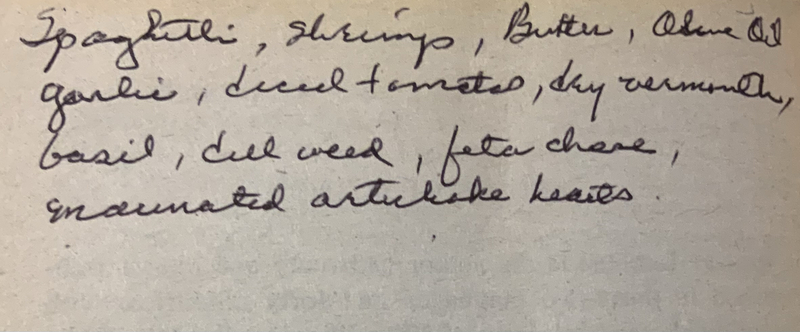 Spaghetti, shrimps, Butter, Olive Oil
garlic, diced tomatoes, dry vermouth,
basil, dill weed, feta cheese,
marinated artichoke hearts.